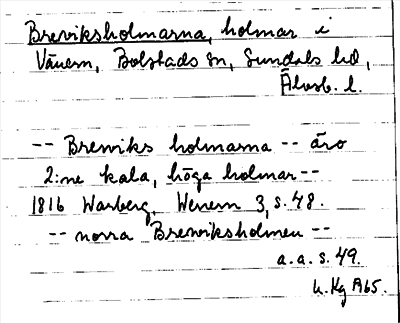 Breviksholmarna, holmar i
Vänern, Bolstads sn, Sundals hd,
Älvsb. l.
-- Breviks holmarna -- äro
2:ne kala, höga holmar --
1816 Warberg, Wenern 3, s. 48.
-- norra Breviksholmen --
a.a. s. 49.
u. Kg A65.